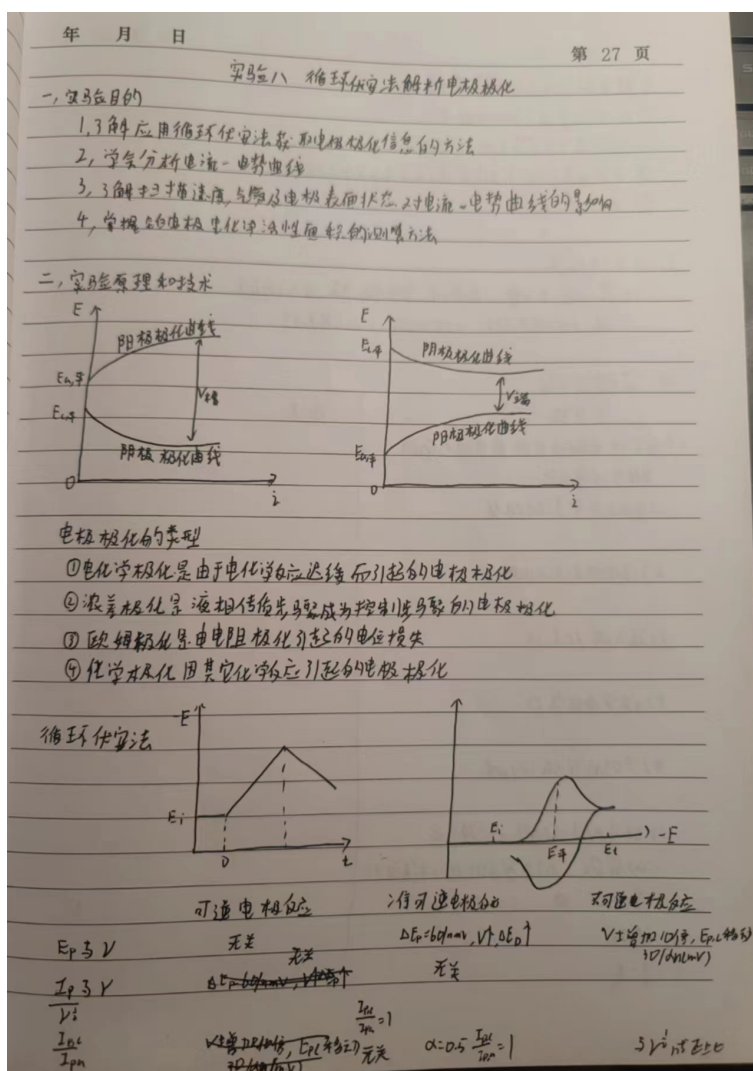 年 月 日
第 27 页
实验八 循环伏安法解析电极极化
一,实验目的
1,了解应用循环伏安法获取电极极化信息的方法
2,学会分析电流-电势曲线
3,了解扫描速度,气氛及电极表面状态对电流-电势曲线的影响
4,掌握铂电极电化学活性面积的测算方法
二,实验原理和技术
E
阳极极化曲线
Ea,平
V端
Ec,平
阴极极化曲线
0
i
E
Ec,平
阴极极化曲线
V端
阳极极化曲线
Ea,平
0
i
电极极化的类型
①电化学极化是由于电化学反应迟缓而引起的电极极化
②浓差极化是液相传质步骤成为控制步骤的电极极化
③欧姆极化是由电阻极化引起的电位损失
④化学极化因其它化学反应引起的电极极化
循环伏安法
-E
Ei
0
t
Ei
E平
Et
-E
可逆电极反应
准可逆电极反应
不可逆电极反应
Ep与V
无关
V↑
V±增加10倍, Ep,c移动
30/αn(mV)
Ip与V
无关
无关
Ipc/Ipa=1
无关
α=0.5
=1